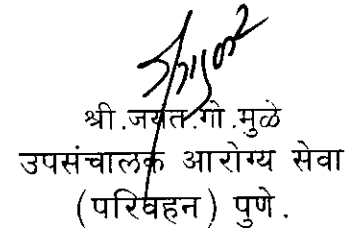 श्री.जयंत.गो.मुळे
उपसंचालक आरोग्य सेवा
(परिवहन) पुणे.